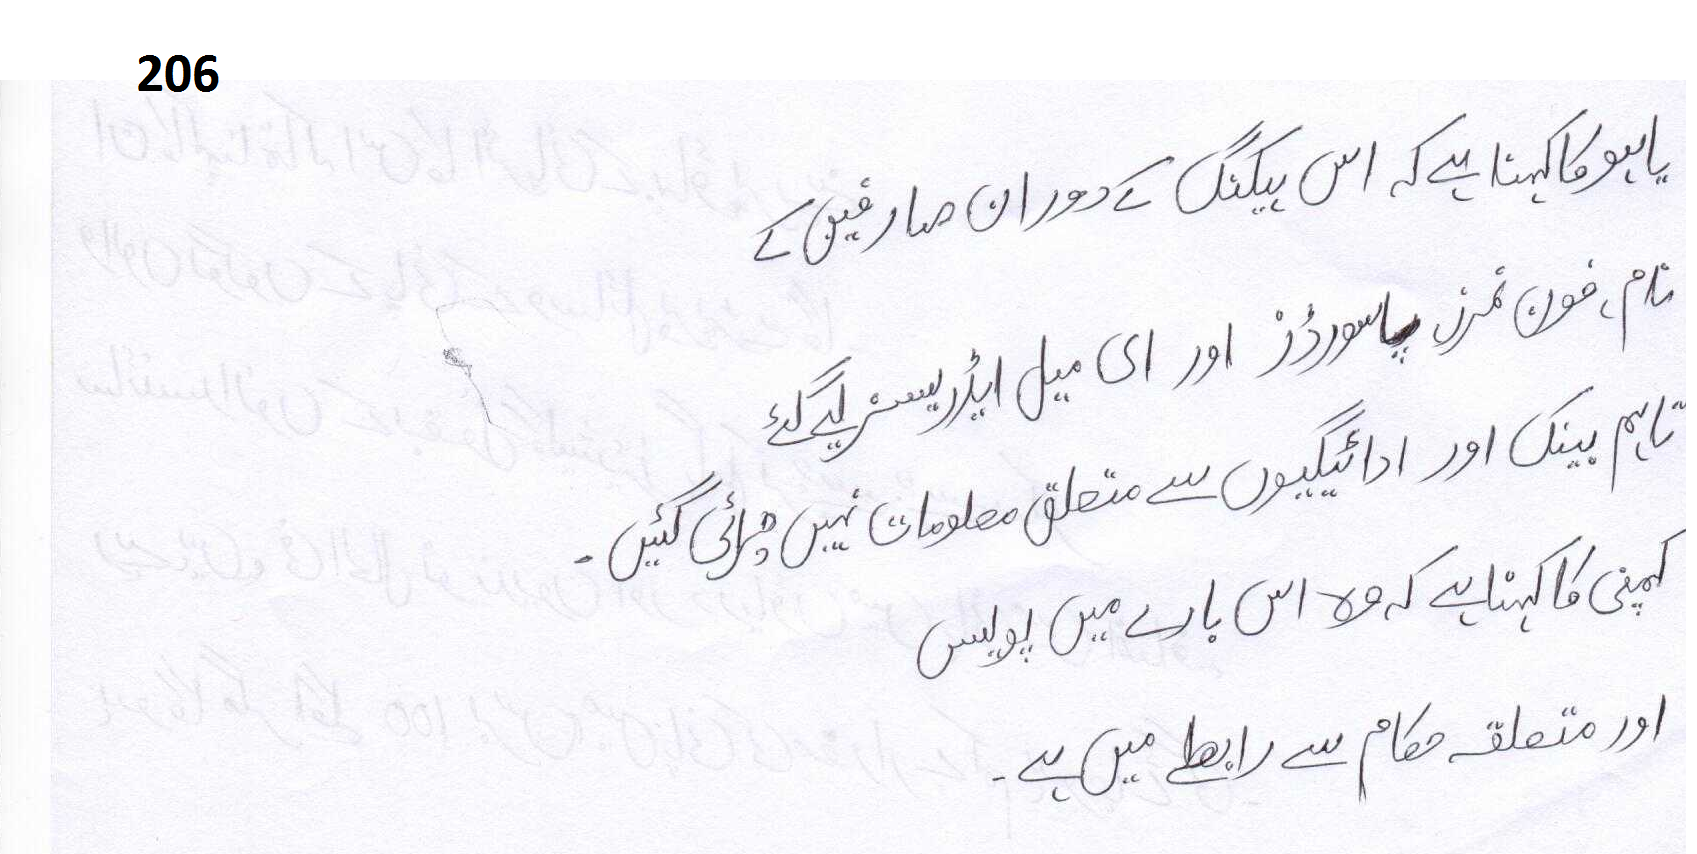 206
یاہو کا کہنا ہے کہ اس ہیکنگ کے دوران صارفین کے
نام، فون نمرز پاسورڈز اور ای میل ایڈریسسز لیے گئے
تاہم بینک اور ادائیگیوں سے متعلق معلومات نہیں چرائی گئیں۔
کمپنی کا کہنا ہے کہ وہ اس بارے میں پولیس
اور متعلقہ حکام سے رابطے میں ہے۔